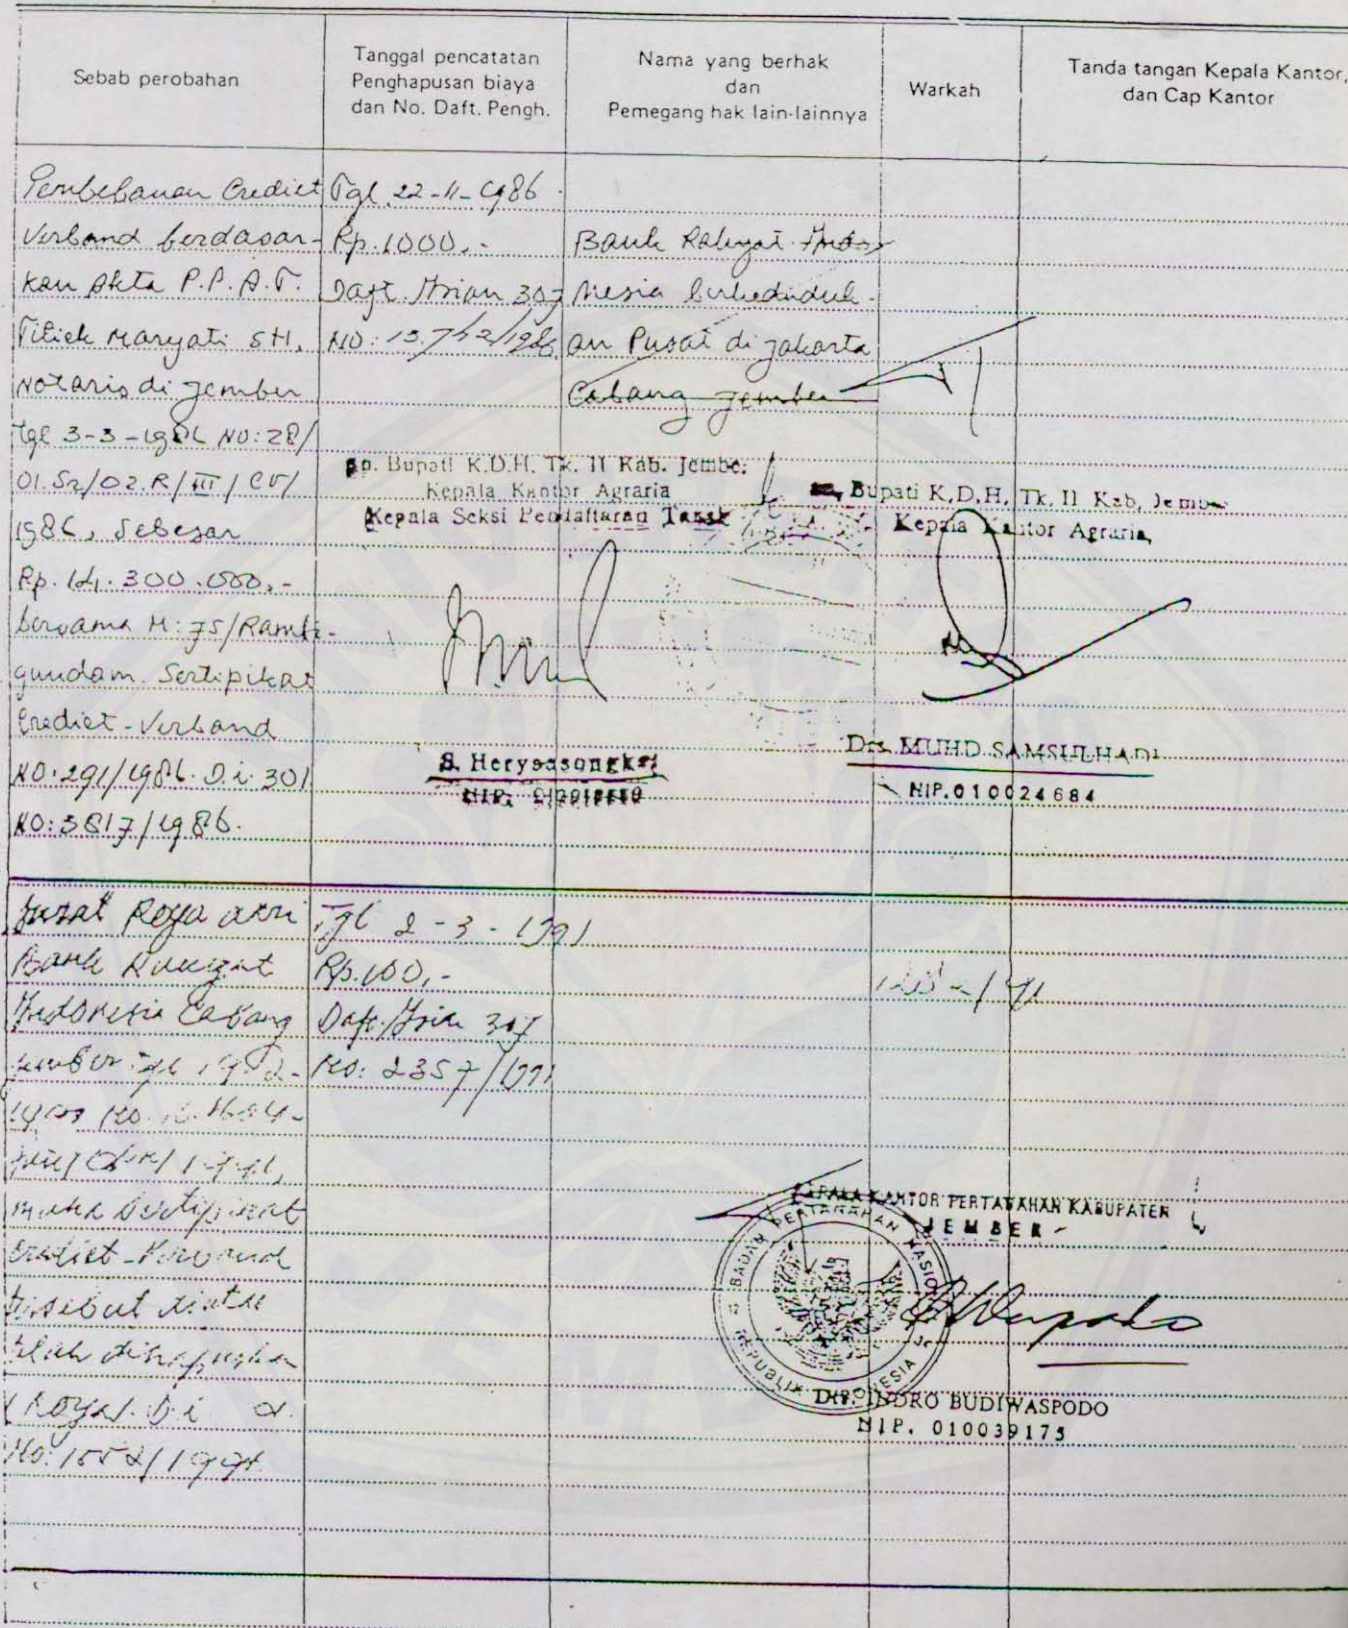 Sebab perobahan
Tanggal pencatatan
Penghapusan biaya
dan No. Daft. Pengh.
Nama yang berhak
dan
Pemegang hak lain-lainnya
Warkah
Tanda tangan Kepala Kantor,
dan Cap Kantor
Pembebanan Crediet
Verband berdasar-
kan Akta P.P.A.T.
Titiek Maryati SH,
Notaris di Jember
Tgl 3-3-1986 NO: 28/
01.Sr/02.R/III/CV/
1986, Sebesar
Rp. 14.300.000,-
bersama M: 75/Rambi-
gundam. Sertipikat
Crediet-Verband
NO. 291/1986. D.i. 301
NO: 3817/1986.
Tgl 22-11-1986
Rp. 1000,-
Daft. Isian 307
NO: 13.752/1986
Bank Rakyat Indo-
nesia berkeduduk-
an Pusat di Jakarta
Cabang Jember
an. Bupati K.D.H. Tk. II Kab. Jember
Kepala Kantor Agraria
Kepala Seksi Pendaftaran Tanah
S. Herysasongko
NIP.
Bupati K.D.H. Tk. II Kab. Jember
Kepala Kantor Agraria,
Drs. MUHD SAMSULHADI
NIP. 010024684
Surat Roya dari
Bank Rakyat
Indonesia Cabang
Jember tgl
maka Sertipikat
Crediet-Verband
tersebut diatas
telah dihapuskan
(Roya). D.i
No: 1552/1991
Tgl 2-3-1991
Rp. 100,-
Daft. Isian 307
NO: 2357/1991
KEPALA KANTOR PERTANAHAN KABUPATEN
JEMBER
BADAN PERTANAHAN NASIONAL
REPUBLIK INDONESIA
Drs. INDRO BUDIWASPODO
NIP. 010039175